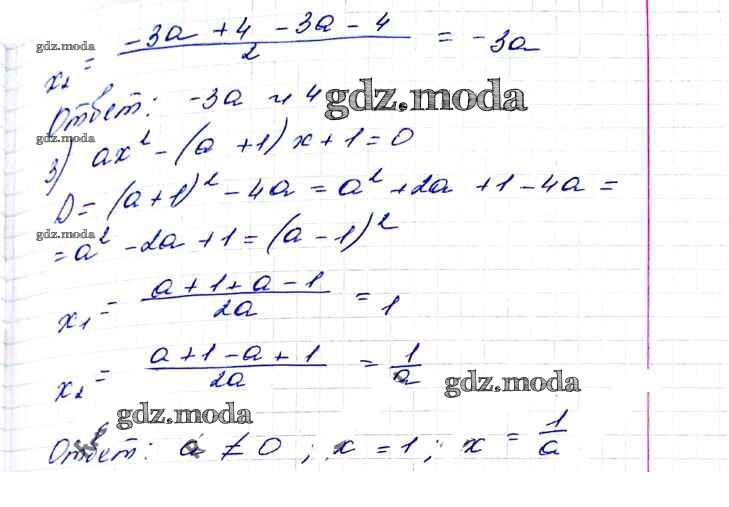 x₂ = (-3a + 4 - 3a - 4)/2 = -3a
gdz.moda
Ответ: -3a и 4
gdz.moda
gdz.moda
3) ax² - (a + 1)x + 1 = 0
D = (a+1)² - 4a = a² + 2a + 1 - 4a =
gdz.moda
= a² - 2a + 1 = (a - 1)²
x₁ = (a + 1 + a - 1)/2a = 1
x₂ = (a + 1 - a + 1)/2a = 1/a
gdz.moda
gdz.moda
Ответ: a ≠ 0; x = 1; x = 1/a